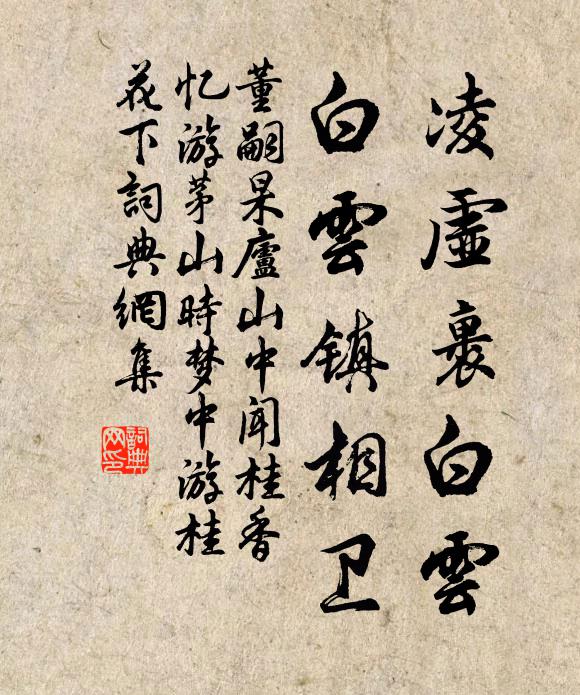 凌虚裹白雲
白雲镇相卫
董嗣杲廬山中闻桂香
忆游茅山時梦中游桂
花下詞典網集
詞典网印